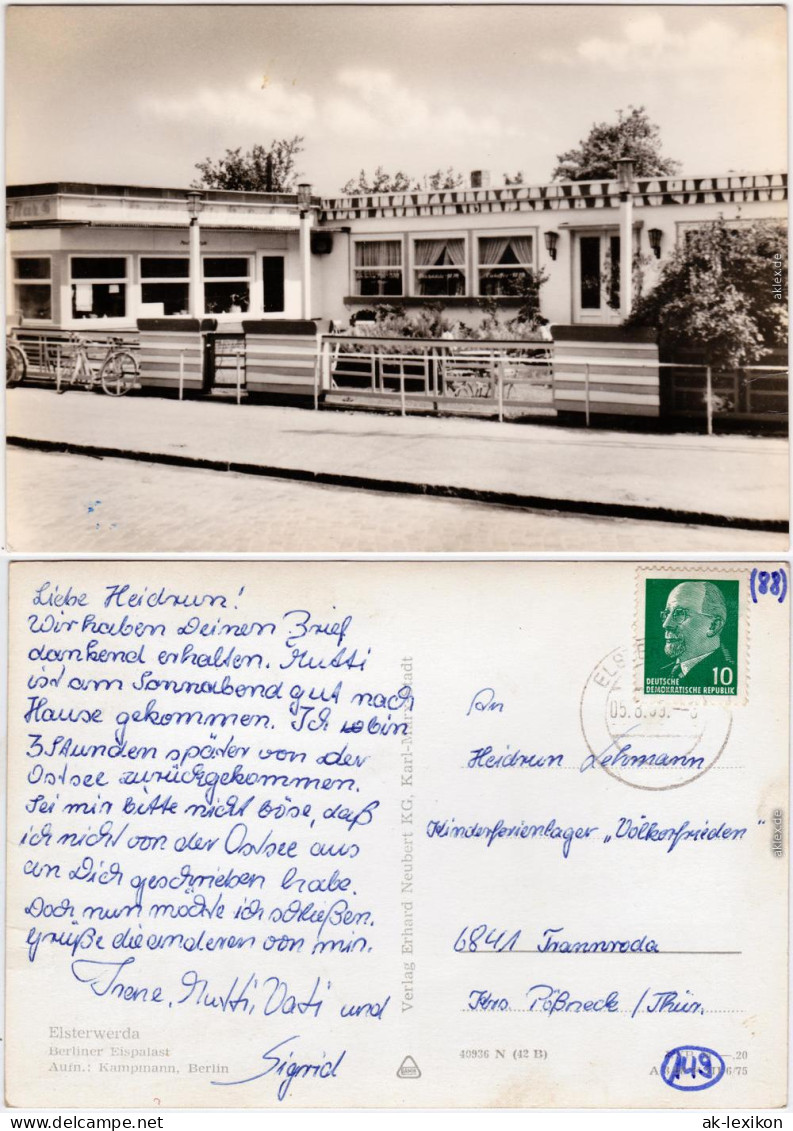 aklex.de
Liebe Heidrun!
Wir haben Deinen Brief
dankend erhalten. Mutti
ist am Sonnabend gut nach
Hause gekommen. Ich bin
3 Stunden später von der
Ostsee zurückgekommen.
Sei mir bitte nicht böse, daß
ich nicht von der Ostsee aus
an Dich geschrieben habe.
Doch nun möchte ich schließen.
Grüße die anderen von mir.
Irene, Mutti, Vati und
Sigrid
Elsterwerda
Berliner Eispalast
Aufn.: Kampmann, Berlin
Verlag Erhard Neubert KG, Karl-Marx-Stadt
(88)
10
DEUTSCHE
DEMOKRATISCHE REPUBLIK
An
Heidrun Lehmann
Kinderferienlager „Völkerfrieden"
6841 Trannroda
Krs Pößneck / Thür.
40936 N (42 B)
149
aklex.de
ak-lexikon.de
ak-lexikon.com